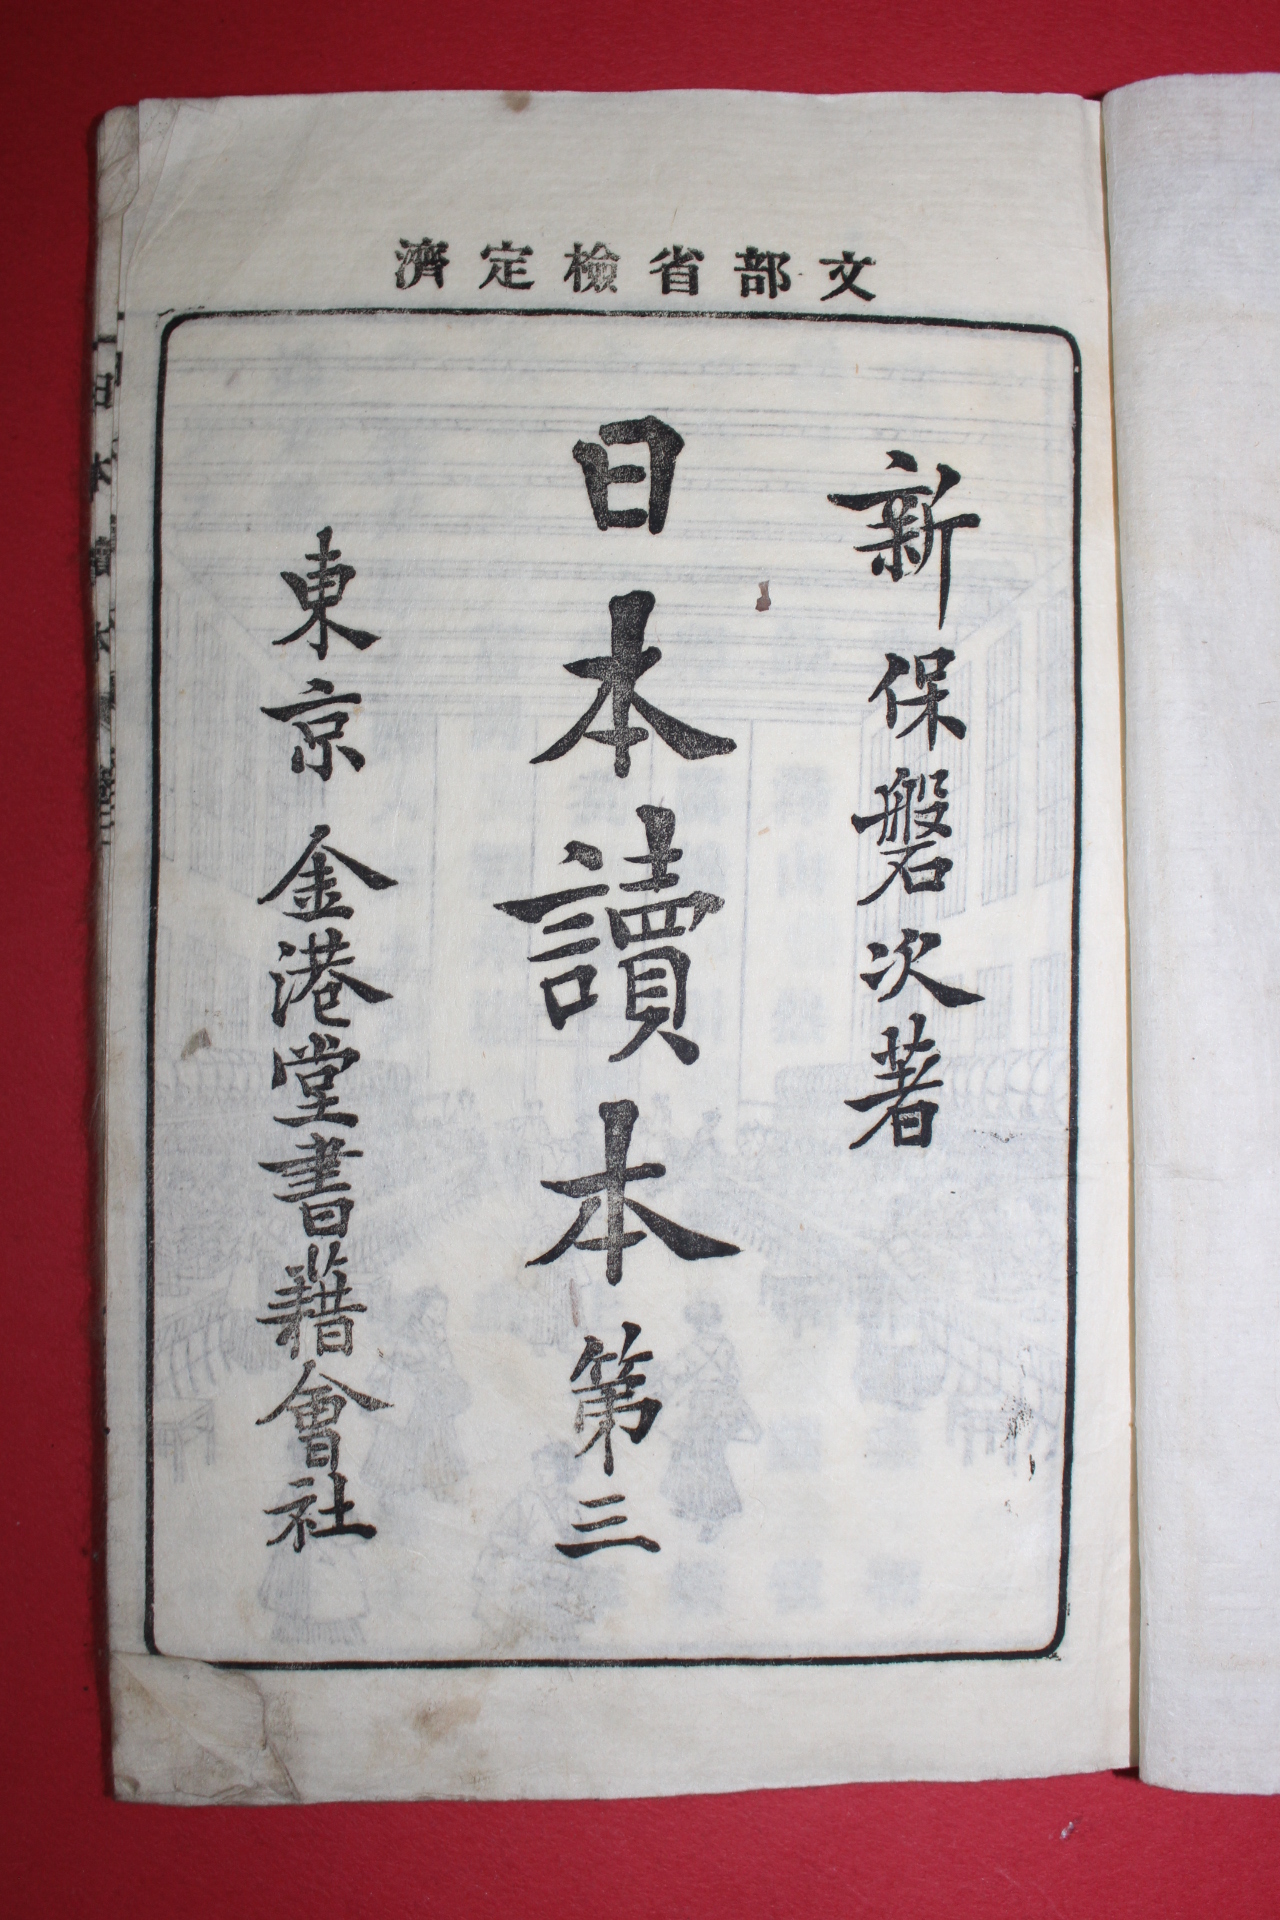 文部省檢定濟
新保磐次著
日本讀本第三
東京 金港堂書籍會社
日本讀本